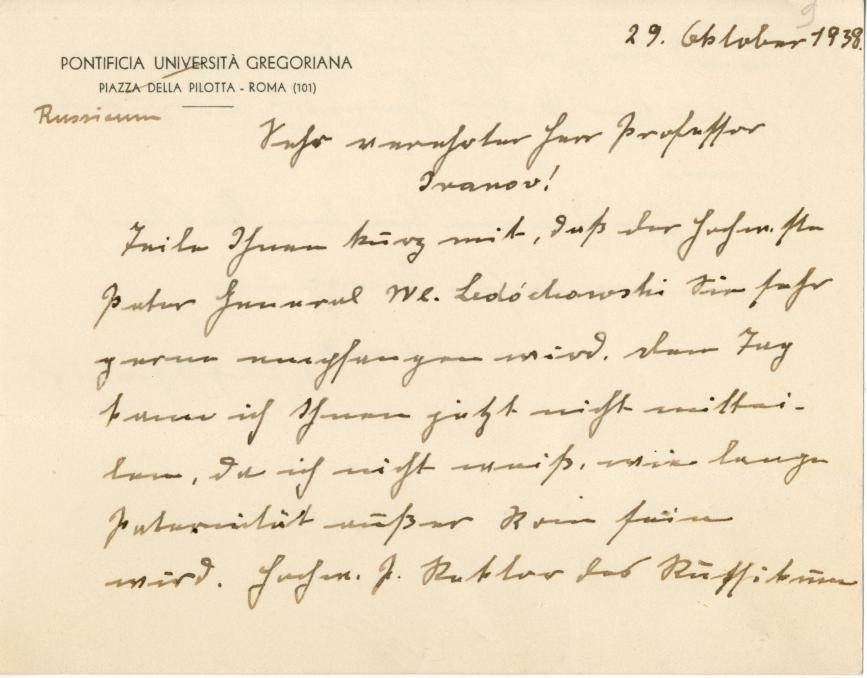 9
29. Oktober 1938.
PONTIFICIA UNIVERSITÀ GREGORIANA
PIAZZA DELLA PILOTTA - ROMA (101)
Russicum
Sehr verehrter Herr Professor
Ivanov!
Teile Ihnen kurz mit, daß der Hochw.ste
Pater General Wl. Ledóchowski Sie sehr
gerne empfangen wird. Den Tag
kann ich Ihnen jetzt nicht mittei-
len, da ich nicht weiß, wie lange
Paternität außer Rom sein
wird. Hochw. P. Rektor des Russikum